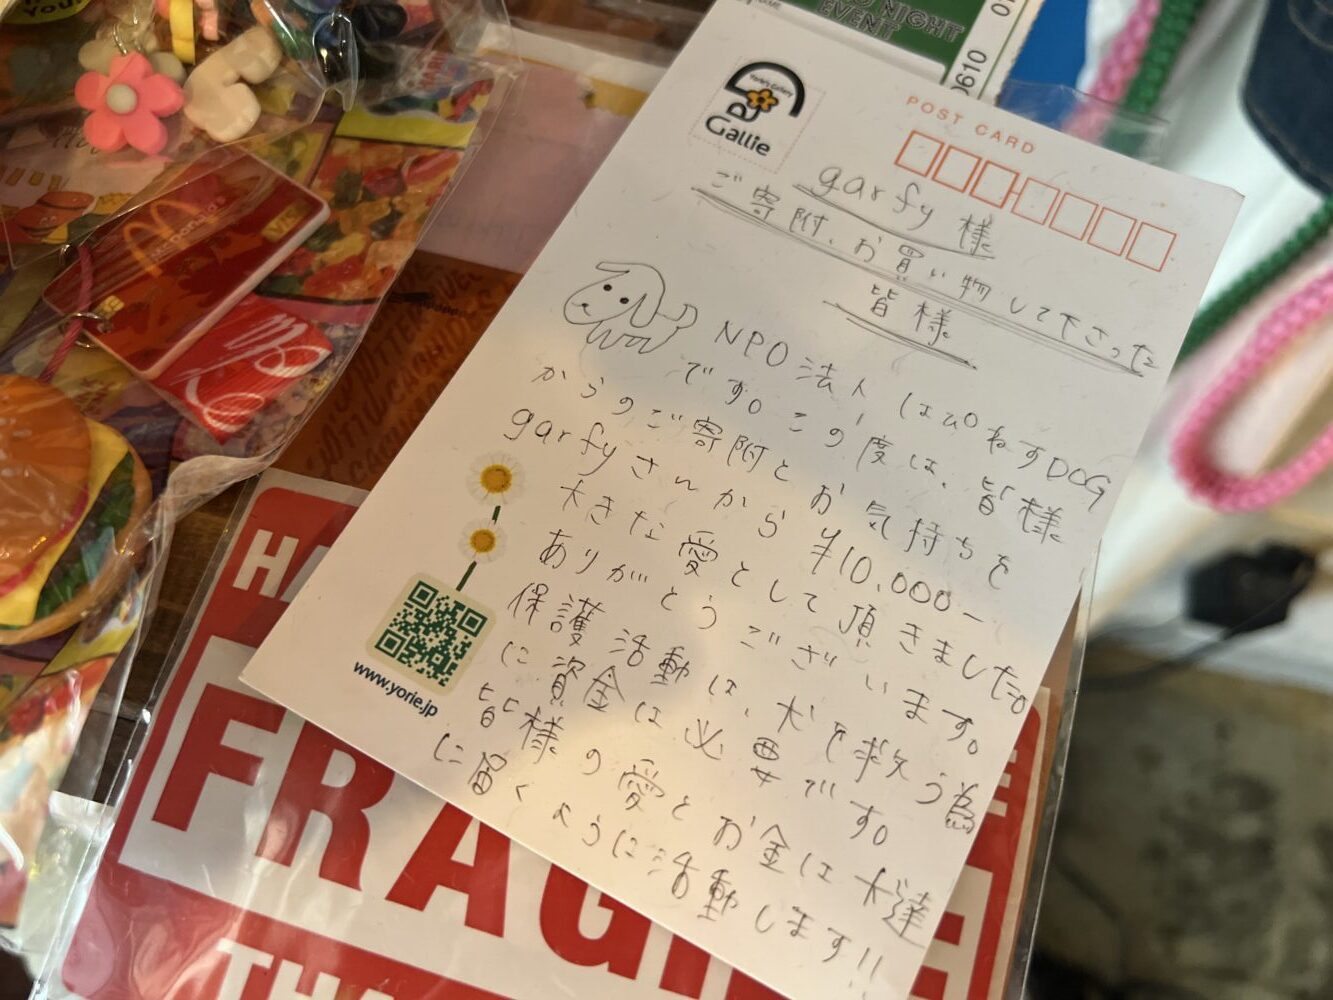 NIGHT
EVENT
0610
POST CARD
Gallie
garfy 様
ご寄附、お買い物して下さった
皆様
NPO法人 はぴねすDOG
です。この度は、皆様
からのご寄附とお気持ちを
garfyさんから ¥10,000ー
大きな愛として頂きました。
ありがとうございます。
保護活動は、犬を救う為
に資金は必要です。
皆様の愛とお金は犬達
に届くように活動します!!
www.yorie.jp
FRAG